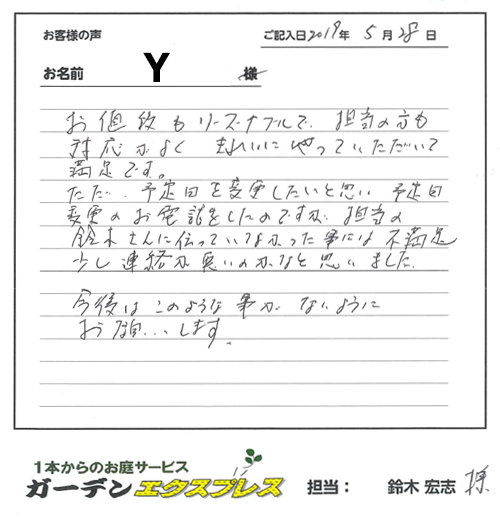 お客様の声
ご記入日2019年 5月28日
お名前 Y 様
お値段もリーズナブルで、担当の方も
対応がよく きれいにやっていただいて
満足です。
ただ、予定日を変更したいと思い 予定日
変更のお電話をしたのですが、担当の
鈴木さんに伝っていなかった事には不満足
少し連絡が悪いのかなと思いました。
今後はこのような事がないように
お願いします。
1本からのお庭サービス
ガーデンエクスプレス 担当: 鈴木 宏志 様